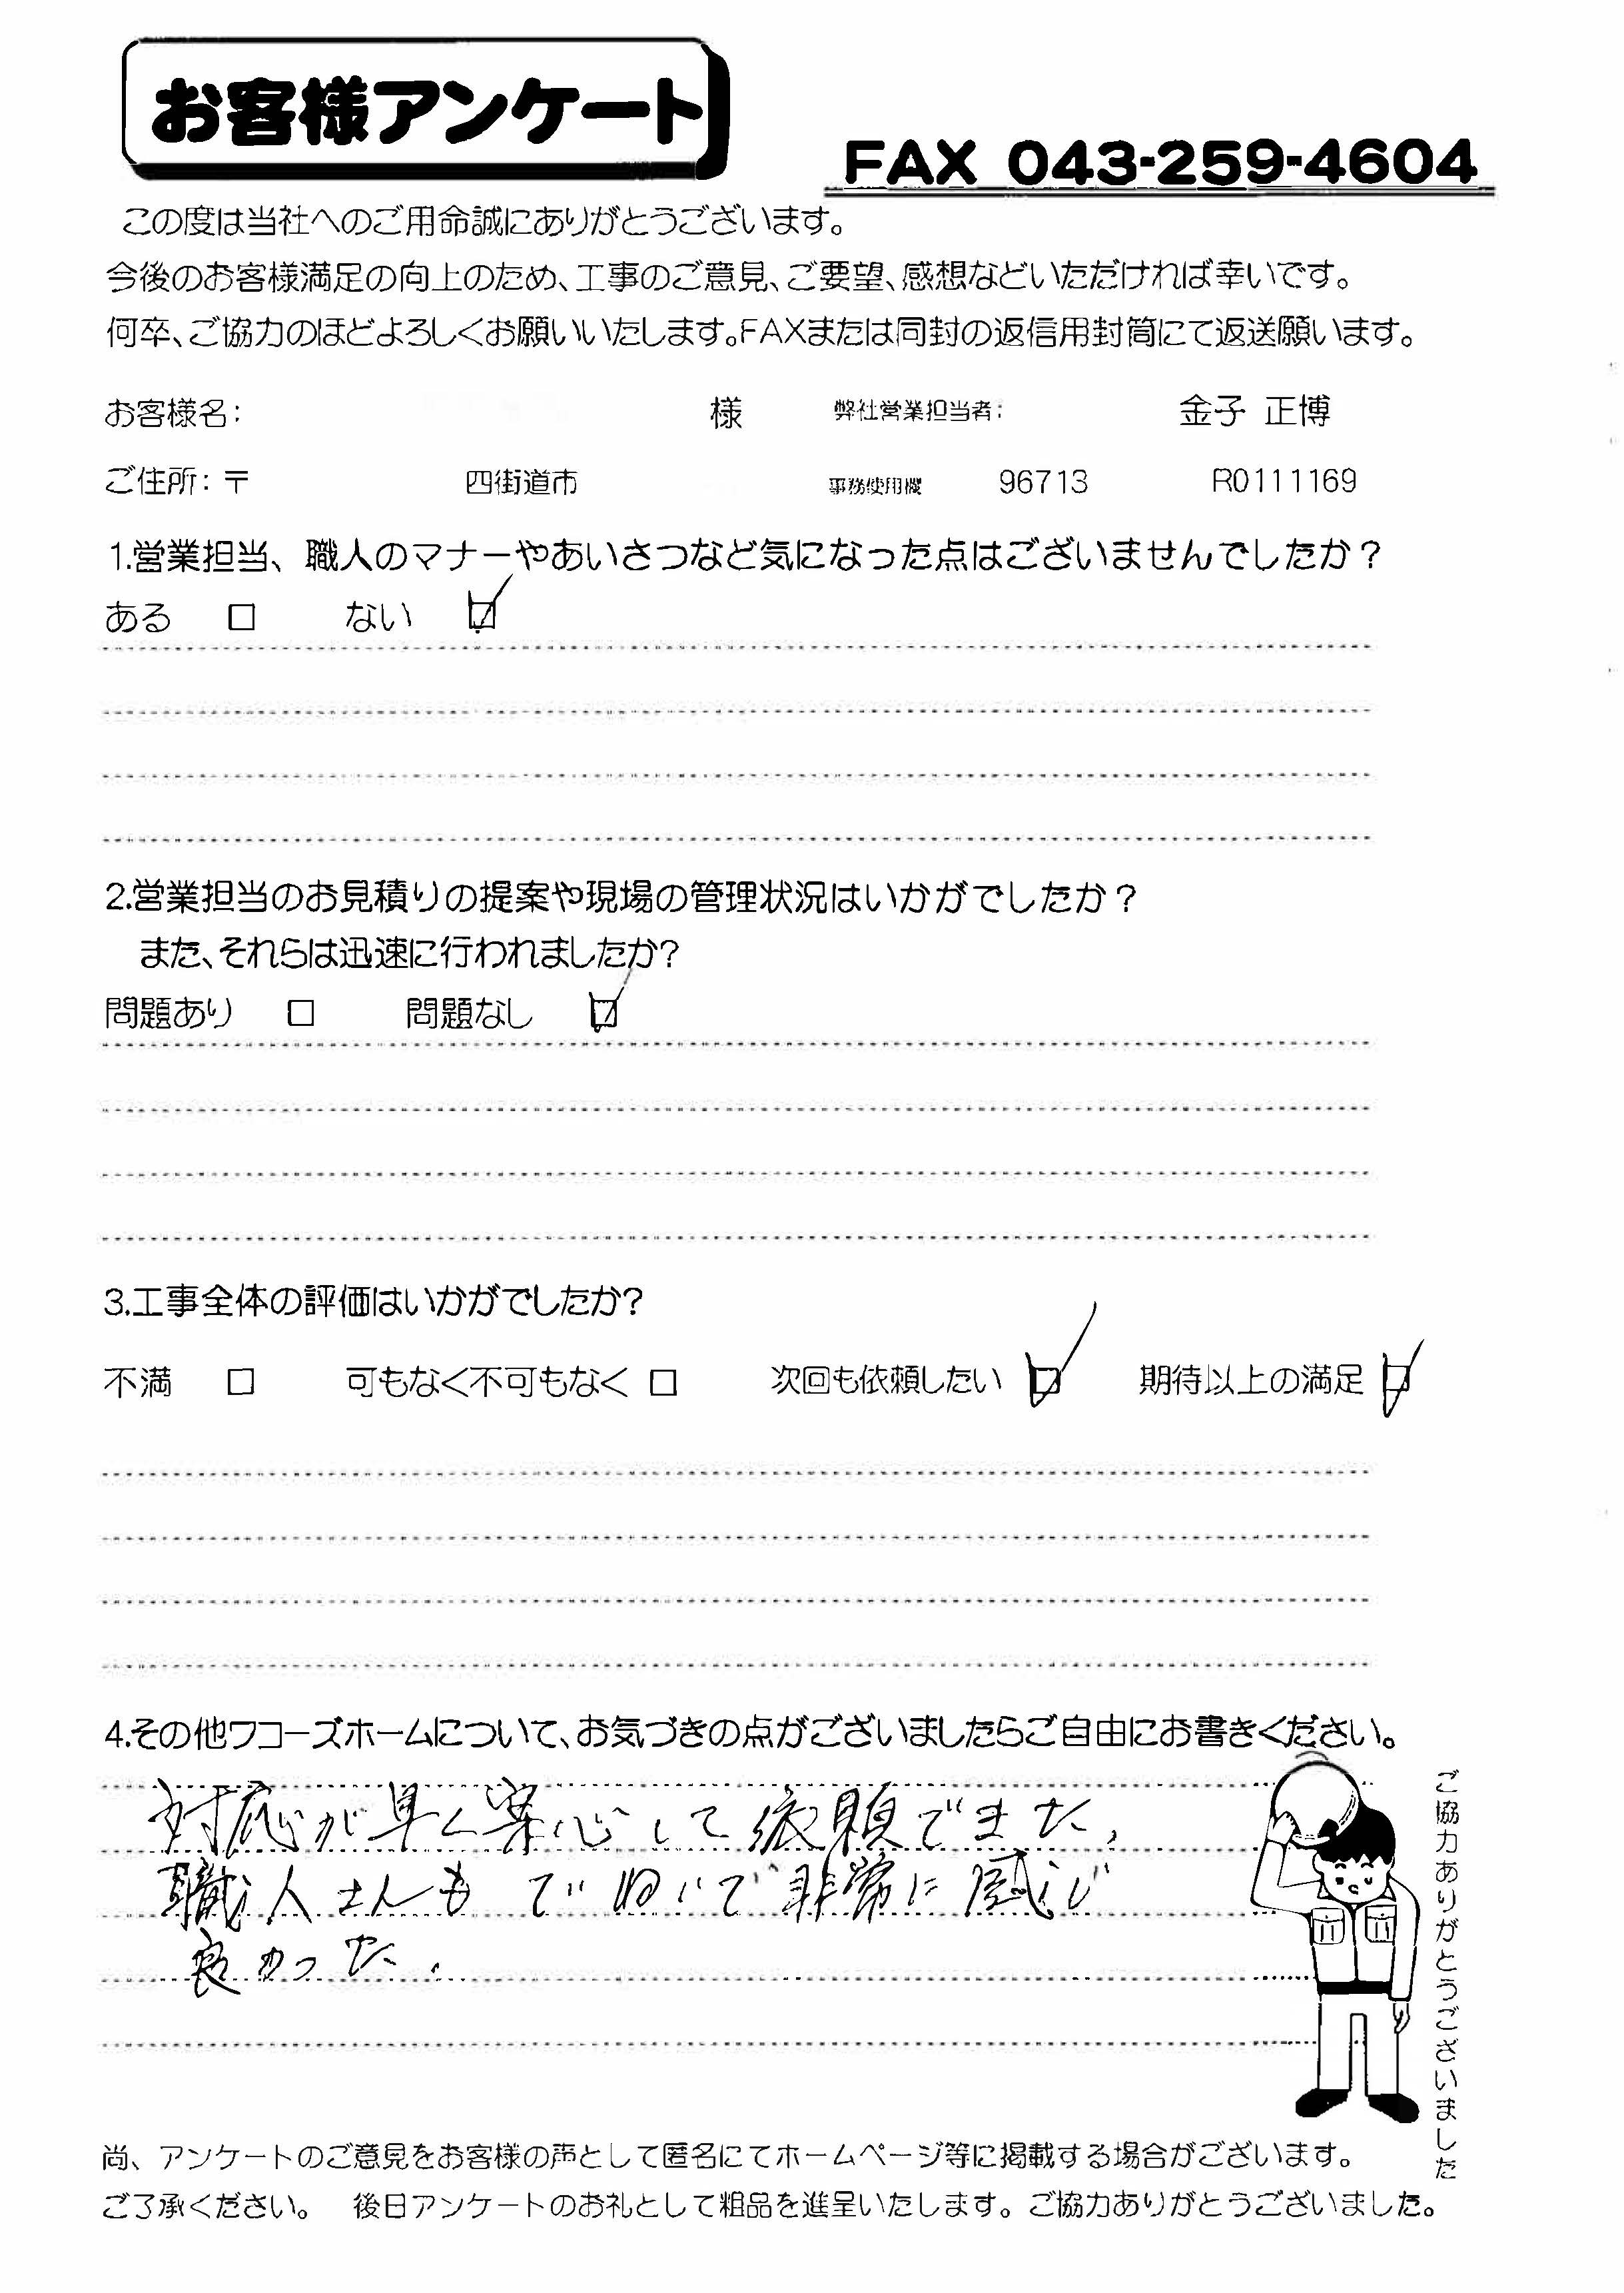 お客様アンケート
FAX 043-259-4604
この度は当社へのご用命誠にありがとうございます。
今後のお客様満足の向上のため、工事のご意見、ご要望、感想などいただければ幸いです。
何卒、ご協力のほどよろしくお願いいたします。FAXまたは同封の返信用封筒にて返送願います。
お客様名： 様 弊社営業担当者： 金子 正博
ご住所：〒 四街道市 事務使用欄 96713 R0111169
1.営業担当、職人のマナーやあいさつなど気になった点はございませんでしたか？
ある □ ない ☑
2.営業担当のお見積りの提案や現場の管理状況はいかがでしたか？
また、それらは迅速に行われましたか？
問題あり □ 問題なし ☑
3.工事全体の評価はいかがでしたか？
不満 □ 可もなく不可もなく □ 次回も依頼したい ☑ 期待以上の満足 ☑
4.その他ワコーズホームについて、お気づきの点がございましたらご自由にお書きください。
対応が早く安心して依頼できた。
職人さんもていねいで非常に感じ
良かった。
ご協力ありがとうございました
尚、アンケートのご意見をお客様の声として匿名にてホームページ等に掲載する場合がございます。
ご了承ください。 後日アンケートのお礼として粗品を進呈いたします。ご協力ありがとうございました。